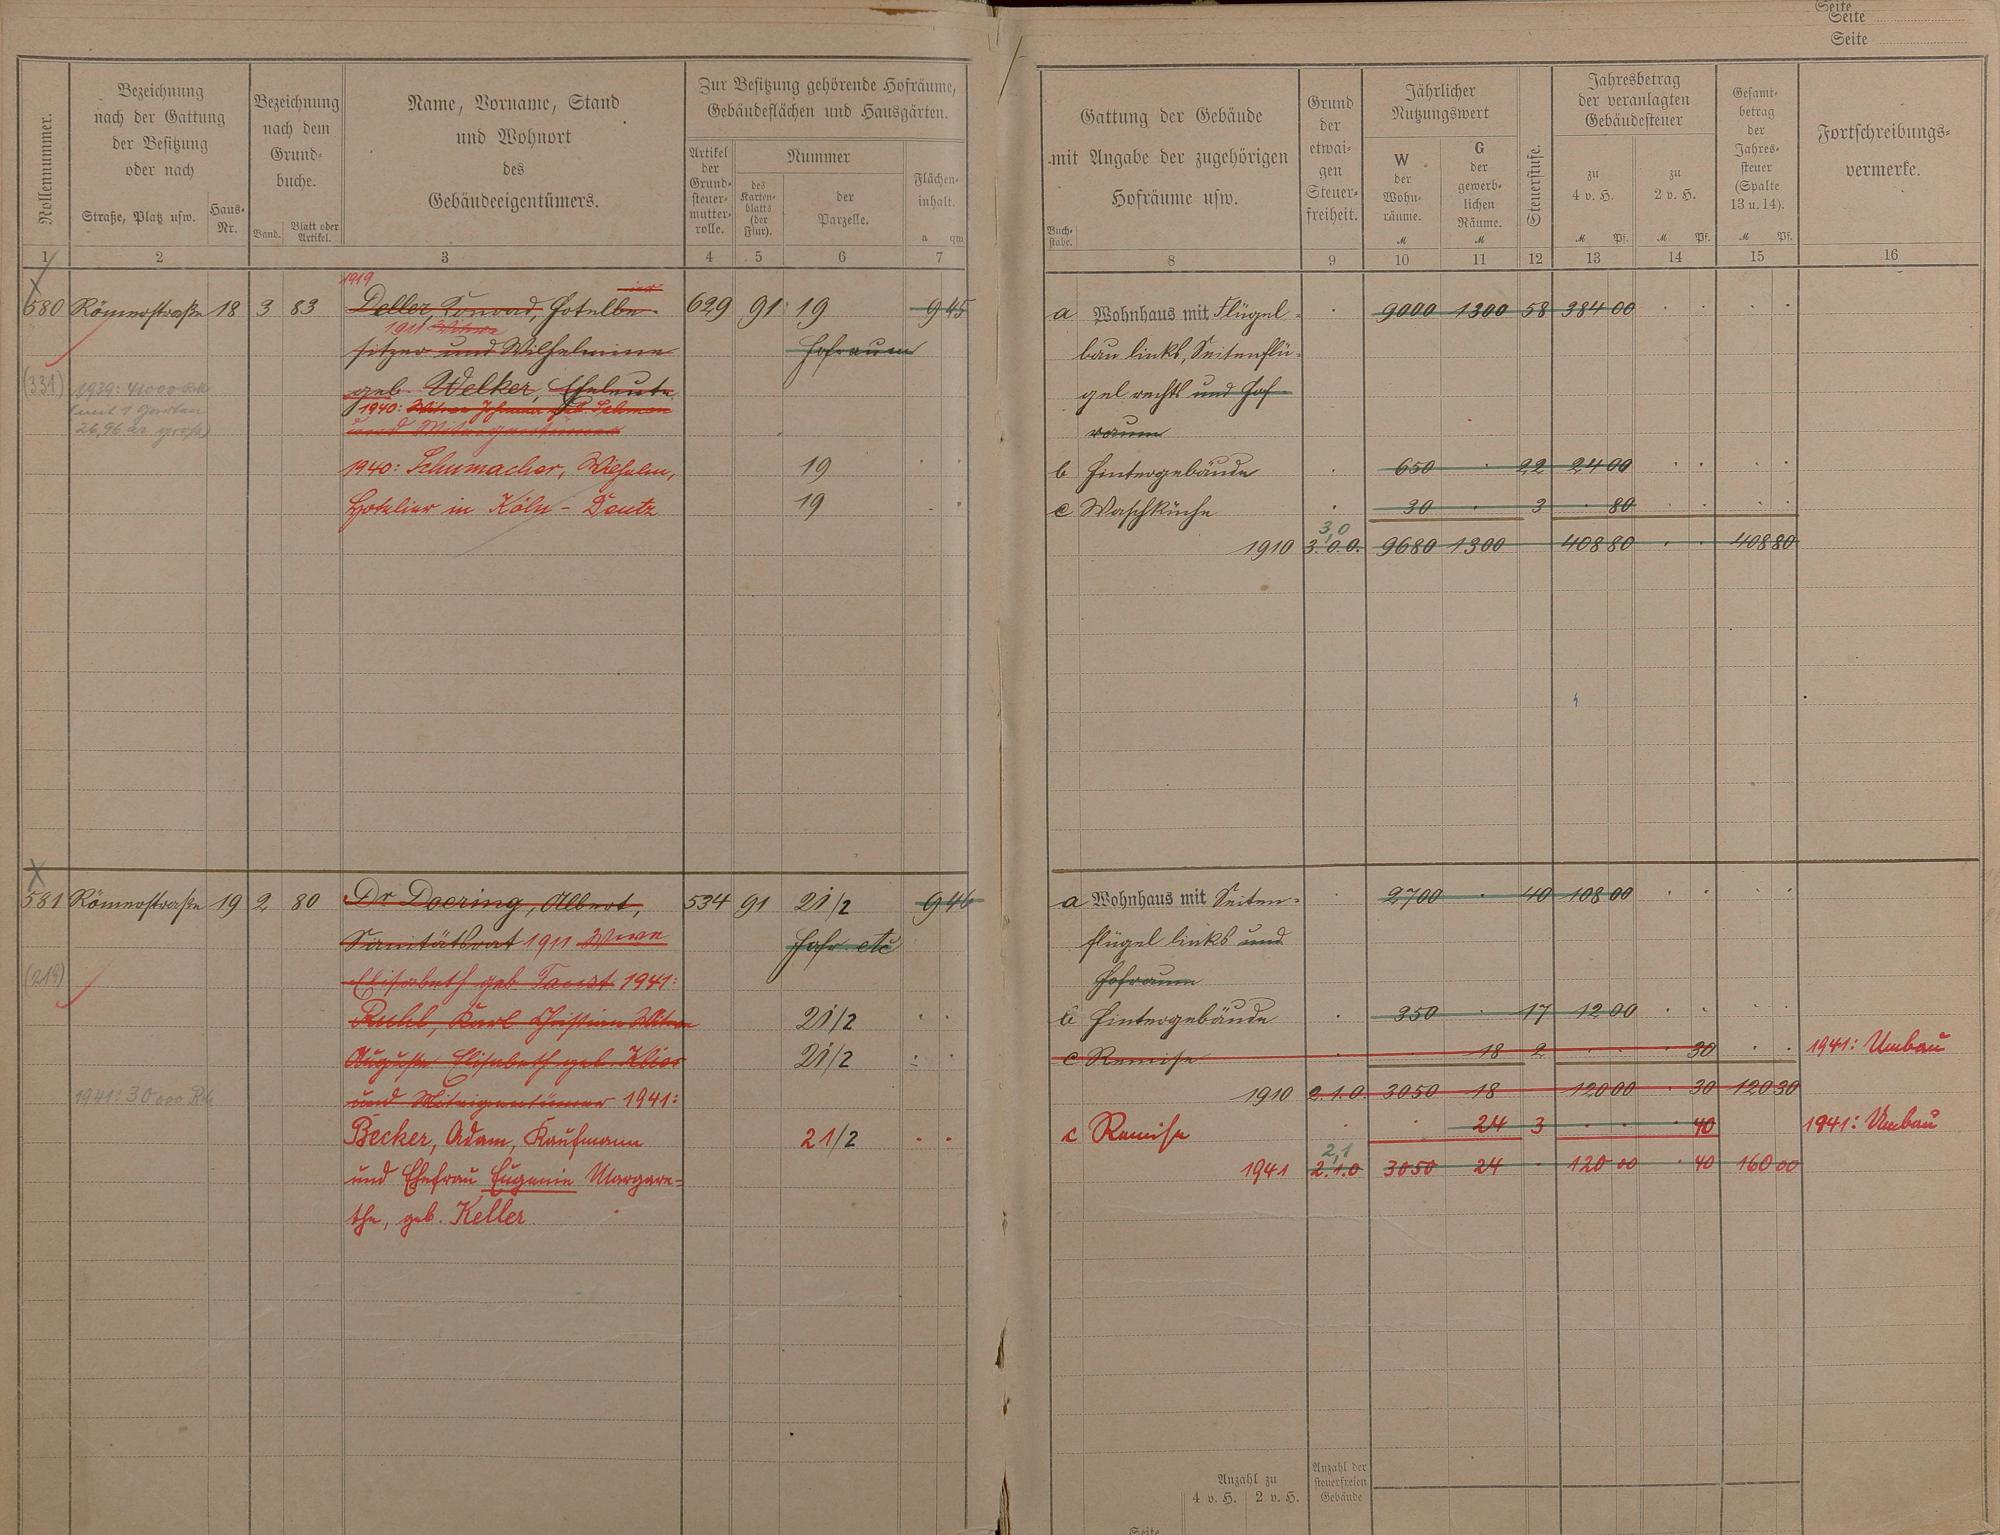 Seite
Seite
Seite
Rollennummer.
Bezeichnung
nach der Gattung
der Besitzung
oder nach
Straße, Platz usw.
Haus-
Nr.
Bezeichnung
nach dem
Grund-
buche.
Band.
Blatt oder
Artikel.
Name, Vorname, Stand
und Wohnort
des
Gebäudeeigentümers.
Zur Besitzung gehörende Hofräume,
Gebäudeflächen und Hausgärten.
Artikel
der
Grund-
steuer-
mutter-
rolle.
Nummer
des
Karten-
blatts
(der
Flur).
der
Parzelle.
Flächen-
inhalt.
a qm
1 2 3 4 5 6 7
Gattung der Gebäude
mit Angabe der zugehörigen
Hofräume usw.
Buch-
stabe.
Grund
der
etwai-
gen
Steuer-
freiheit.
Jährlicher
Nutzungswert
W
der
Wohn-
räume.
M
G
der
gewerb-
lichen
Räume.
M
Steuerstufe.
Jahresbetrag
der veranlagten
Gebäudesteuer
zu
4 v. H.
M Pf.
zu
2 v. H.
M Pf.
Gesamt-
betrag
der
Jahres-
steuer
(Spalte
13 u. 14).
M Pf.
Fortschreibungs-
vermerke.
8 9 10 11 12 13 14 15 16
1919
580 Römerstraße 18 3 83 Deller, Konrad, Hotelbe- 629 91 19 9 45
1911 Witwe
sitzer und Wilhelmine Hofraum
(331) 1939: 41000 Rm
geb. Welker, Eheleute
(mit 1 Garten
1940:
26,96 ar groß)
und Miteigentümer
1940: Schumacher, Wilhelm, 19
Hotelier in Köln-Deutz 19
a Wohnhaus mit Flügel- 9000 1300 58 384 00
bau links, Seitenflü-
gel rechts und Hof-
raum
b Hintergebäude 650 22 24 00
c Waschküche 30 3 80
3,0
1910 3.0.0. 9680 1300 408 80 408 80
581 Römerstraße 19 2 80 Dr Doering, Albert, 534 91 21/2 9 46
Sanitätsrat 1911 Wwe Hofr. etc
(219) Elisabeth geb. 1941:
Karl Christian Witwe 21/2
Auguste Elisabeth geb. 21/2
1941: 30000 Rm und Miteigentümer 1941:
Becker, Adam, Kaufmann 21/2
und Ehefrau Eugenie Margare-
the, geb. Keller
a Wohnhaus mit Seiten- 2700 40 108 00
flügel links und
Hofraum
b Hintergebäude 350 17 12 00
c Remise 18 2 30 1941: Umbau
1910 2.1.0 3050 18 120 00 30 120 30
c Remise 24 3 40 1941: Umbau
2,1
1941 2.1.0 3050 24 120 00 40 160 00
Anzahl zu
4 v. H. 2 v. H.
Anzahl der
steuerfreien
Gebäude
Seite